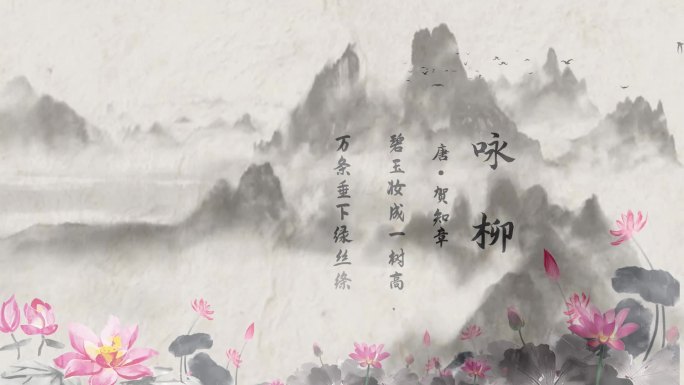 咏柳
唐·贺知章
碧玉妆成一树高.
万条垂下绿丝绦